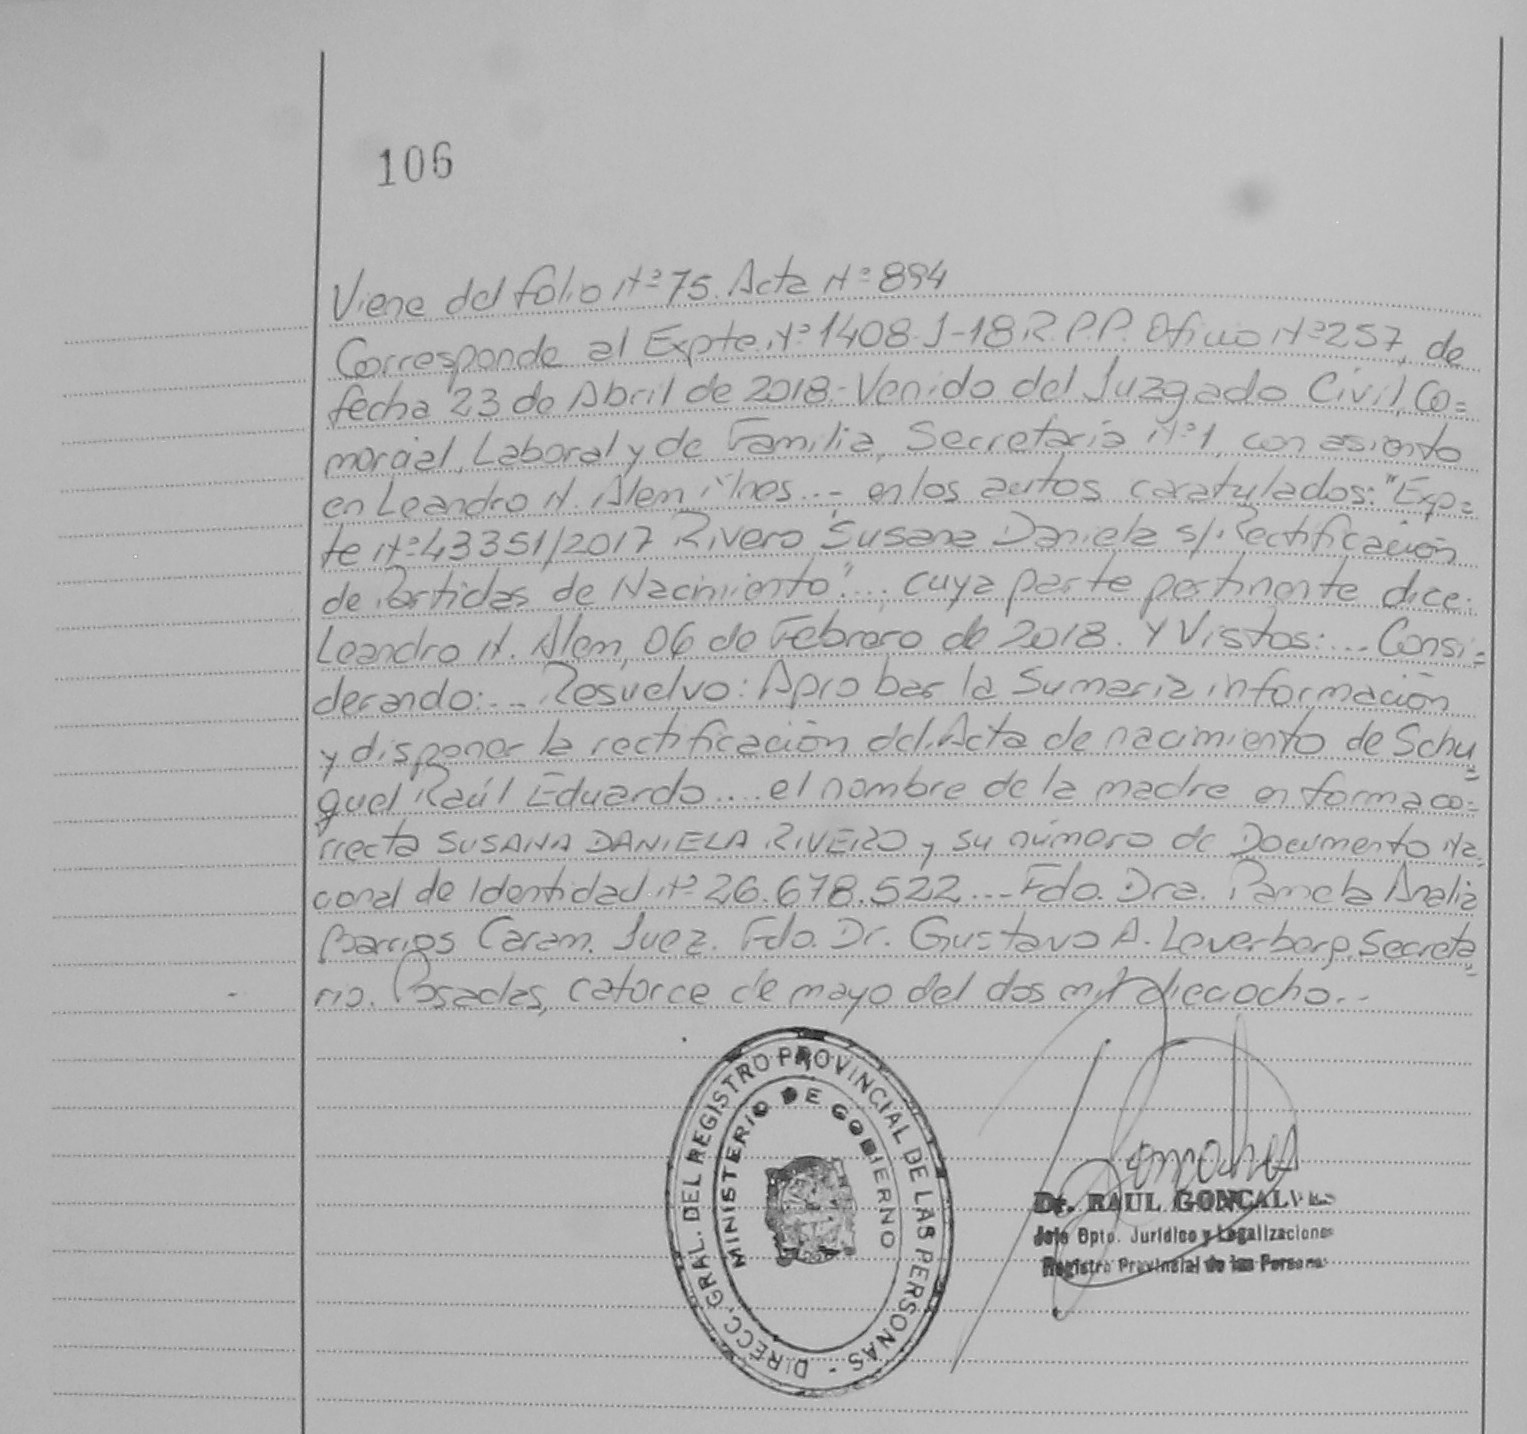 106
Viene del folio Nº 75. Acta Nº 894
Corresponde al Expte. Nº 1408-J-18 R.P.P. Oficio Nº 257, de
fecha 23 de Abril de 2018.- Venido del Juzgado Civil, Co=
mercial, Laboral y de Familia, Secretaría Nº 1, con asiento
en Leandro N. Alem Mnes...- en los autos caratulados: "Exp=
te Nº 43351/2017 Rivero Susana Daniela s/. Rectificación
de Partidas de Nacimiento"..., cuya parte pertinente dice:
Leandro N. Alem, 06 de Febrero de 2018. Y Vistos:... Consi=
derando:... Resuelvo: Aprobar la Sumaria información
y disponer la rectificación del Acta de nacimiento de Schu=
quel Raúl Eduardo.... el nombre de la madre en forma co=
rrecta SUSANA DANIELA RIVERO y su número de Documento Na
cional de Identidad Nº 26.678.522... Fdo. Dra. Pamela Analia
Barrios Caram. Juez. Fdo. Dr. Gustavo A. Loverberg. Secreta=
rio. Posadas, catorce de mayo del dos mil dieciocho...
DIRECC. GRAL. DEL REGISTRO PROVINCIAL DE LAS PERSONAS -
MINISTERIO DE GOBIERNO
Dr. RAUL GONCALVES
Jefe Dpto. Jurídico y Legalizaciones
Registro Provincial de las Personas